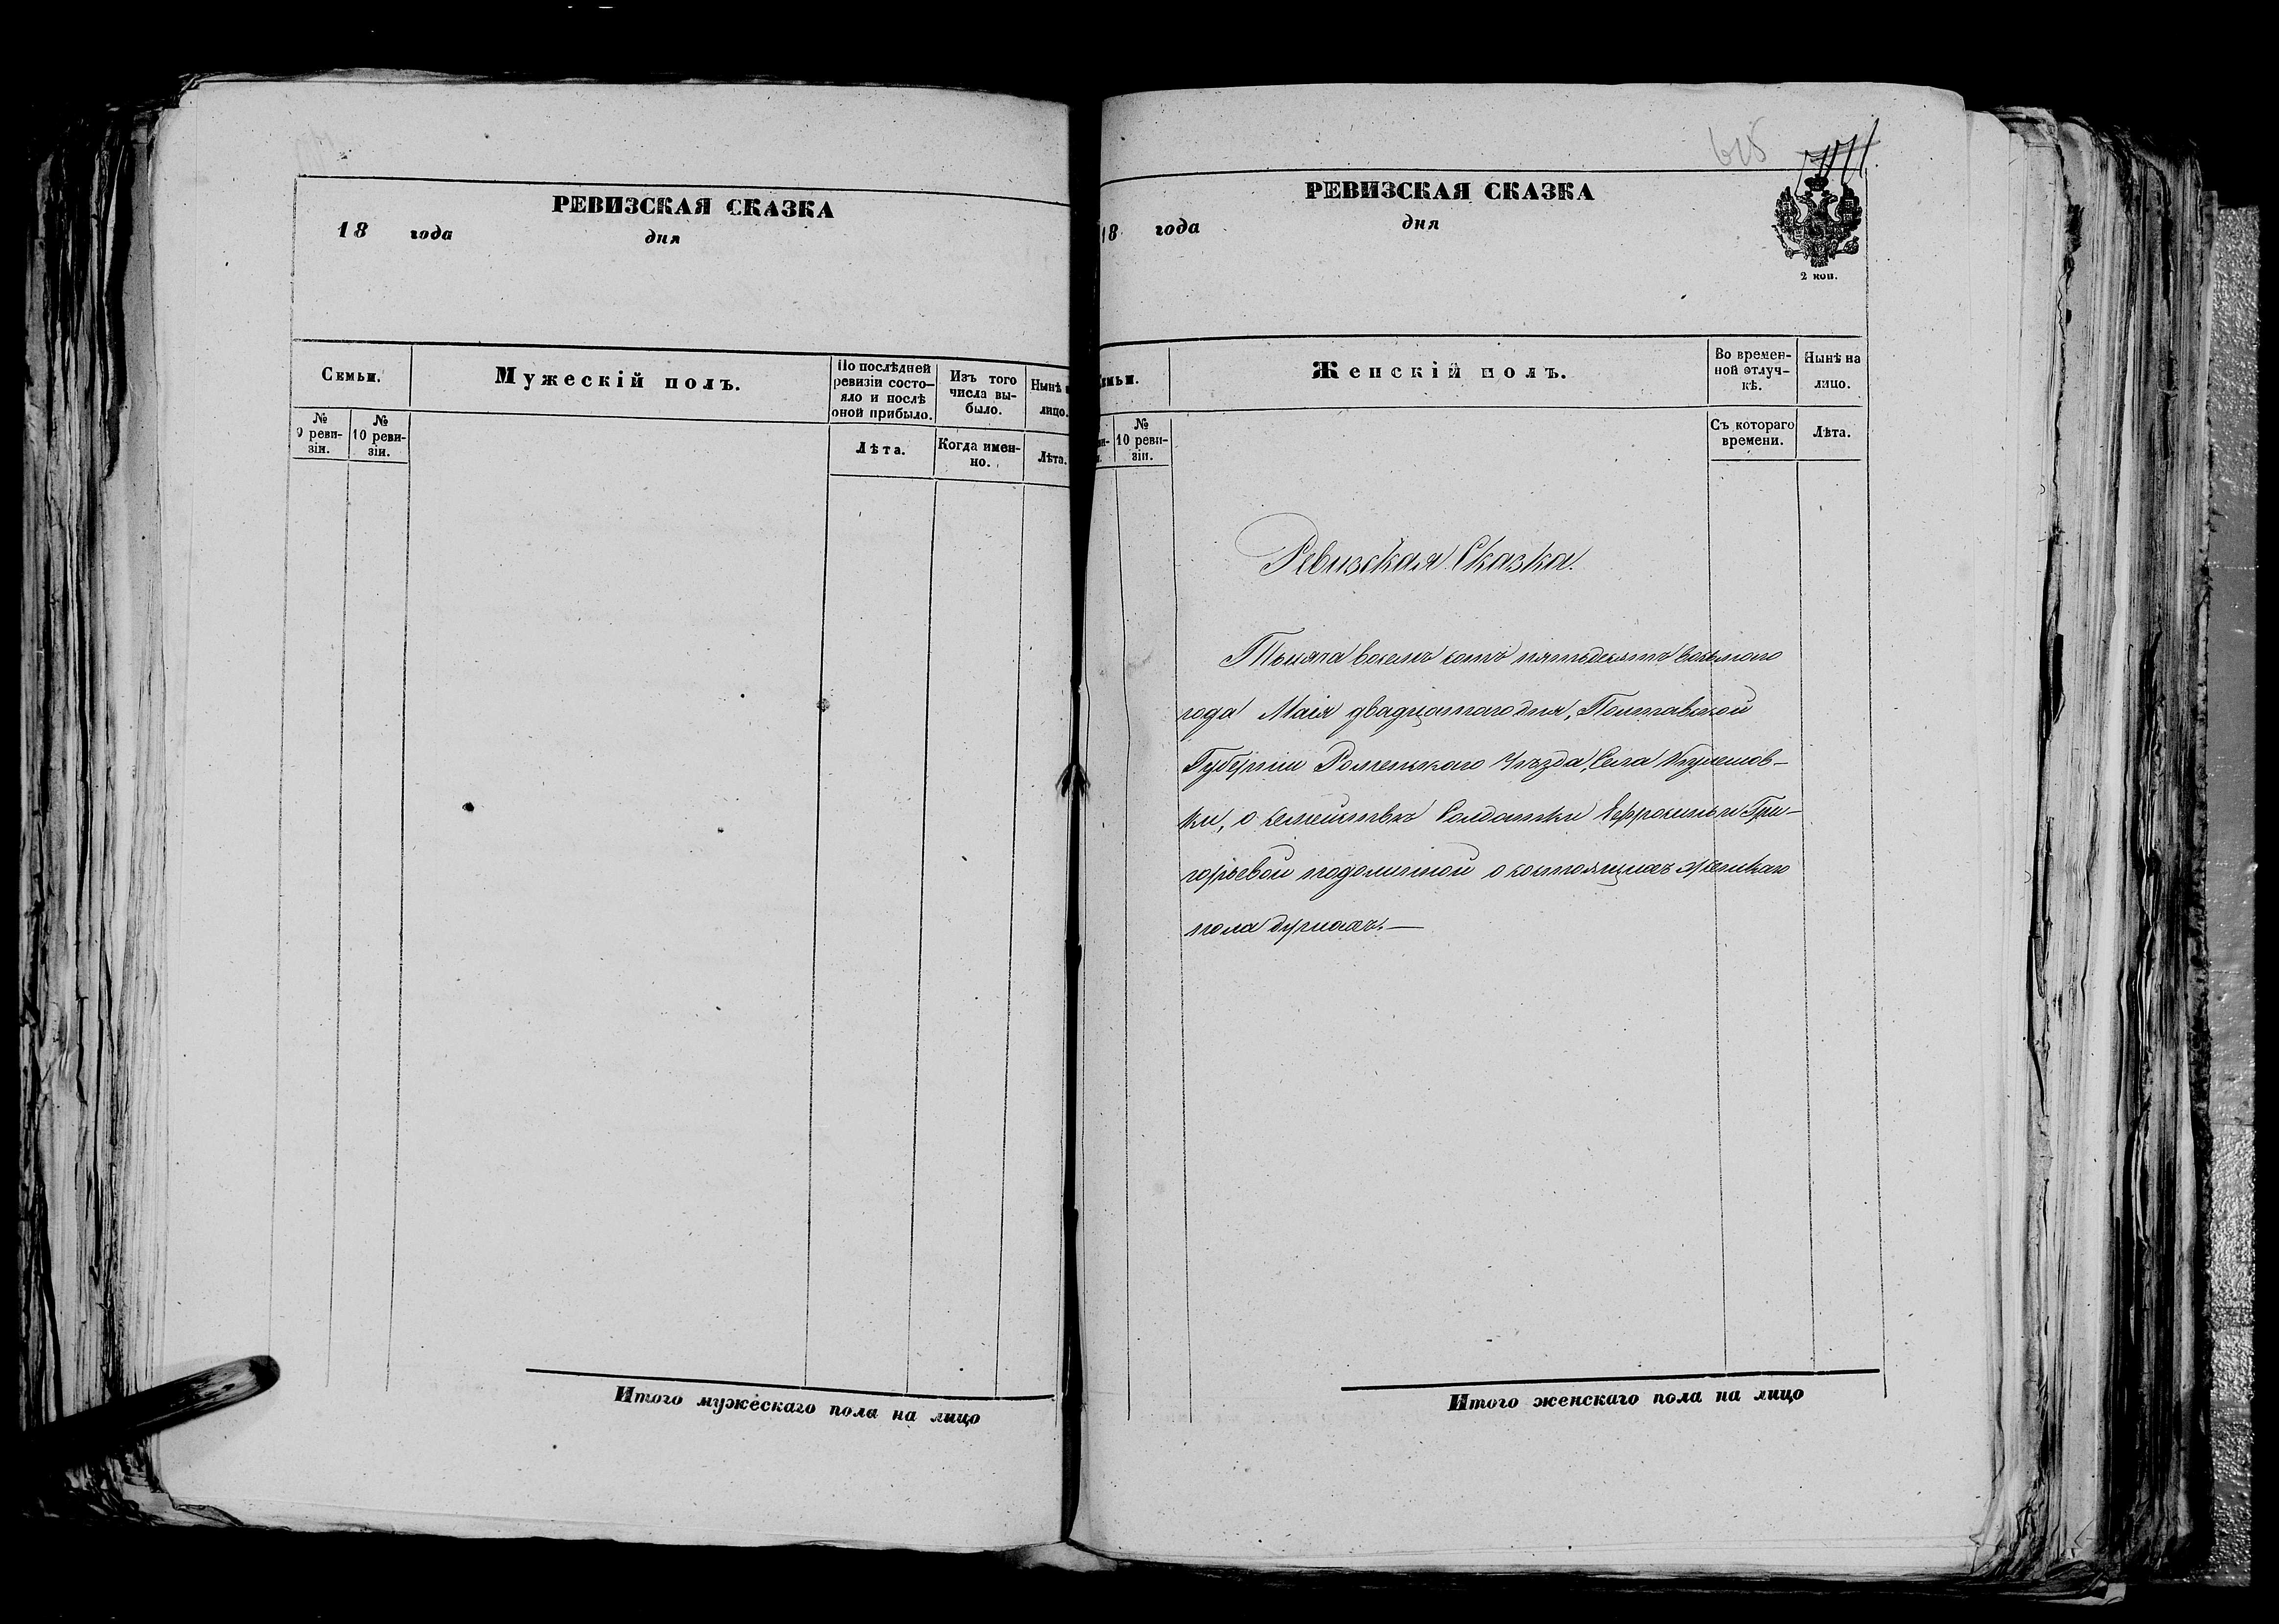 РЕВИЗСКАЯ СКАЗКА
18 года дня
Семьи.
Мужескій полъ.
По послѣдней
ревизіи состо-
яло и послѣ
оной прибыло.
Изъ того
числа вы-
было.
Нынѣ
лицо.
№
9 реви-
зіи.
№
10 реви-
зіи.
Лѣта.
Когда имен-
но.
Лѣта.
Итого мужескаго пола на лицо
615
РЕВИЗСКАЯ СКАЗКА
18 года дня
2 коп.
Женскій полъ.
Во времен-
ной отлуч-
кѣ.
Нынѣ на
лицо.
№
10 реви-
зіи.
Съ котораго
времени.
Лѣта.
Ревизская Сказка.
Тысяча восемь сотъ пятьдесятъ восьмаго
года Маія двадцатаго дня, Полтавской
Губерніи Роменскаго Уѣзда, Села
ки, о семействѣ Солдатки Ефросиньи Гри-
горьевой о состоящихъ женскаго
пола душахъ.—
Итого женскаго пола на лицо